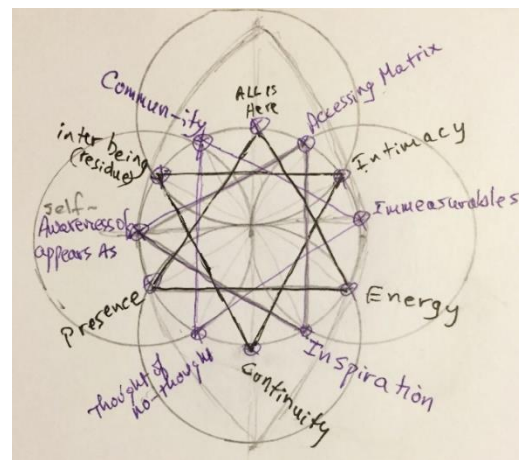 ALL IS
Here
Accessing Matrix
Intimacy
Immeasurables
Energy
Inspiration
Continuity
Thought of
no-thought
Presence
self-
Awareness of
appears As
inter being
(residue)
Commun-ity